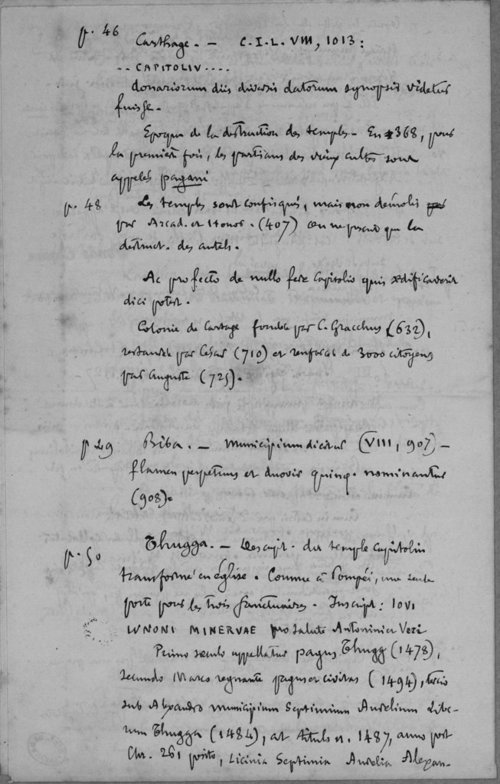 p. 46 Carthage. — C.I.L. VIII, 1013:
.. CAPITOLIV....
donariorum diis diversis datorum synopsis videtur
fuisse.
Epoque de la destruction des temples. En 368, pour
la première fois, les partisans des vieux cultes sont
appelés pagani
p. 48 Les temples sont confisqués, mais non démolis
par Arcad. et Honor. (407) on ne prend que la
destruct. des autels.
Ac profecto de nullo fere Capitolio quis ædificaverit
dici potest.
Colonie de Cartage fondée par C. Gracchus (632),
restaurée par César (710) et renforcée de 3000 citoyens
par Auguste (725).
p 49 Biba. — Municipium dicitur (VIII, 907) —
flamen perpetuus et duovir quinq. nominantur
(908).
p. 50 Thugga. — Descript. du temple Capitolin
transformé en église. Comme à Pompéi, une seule
porte pour les trois sanctuaires. Inscript: IOVI
IVNONI MINERVAE pro salute Antonini et Veri
Primo sæculo appellatur pagus Thugg (1478),
secundo Marco regnante pagus et civitas (1494), tertio
sub Alexandro municipium Septimium Aurelium Libe-
rum Thugga (1484), at titulo n. 1487, anno post
Chr. 261 posito, Licinia Septimia Aurelia Alexan-